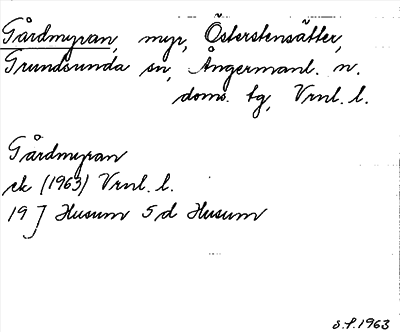 Gårdmyran, myr, Österstensätter,
Grundsunda sn, Ångermanl. n.
doms. tg, Vrnl. l.
Gårdmyran
ek (1963) Vrnl. l.
19 J Husum 5 d Husum
S.F. 1963